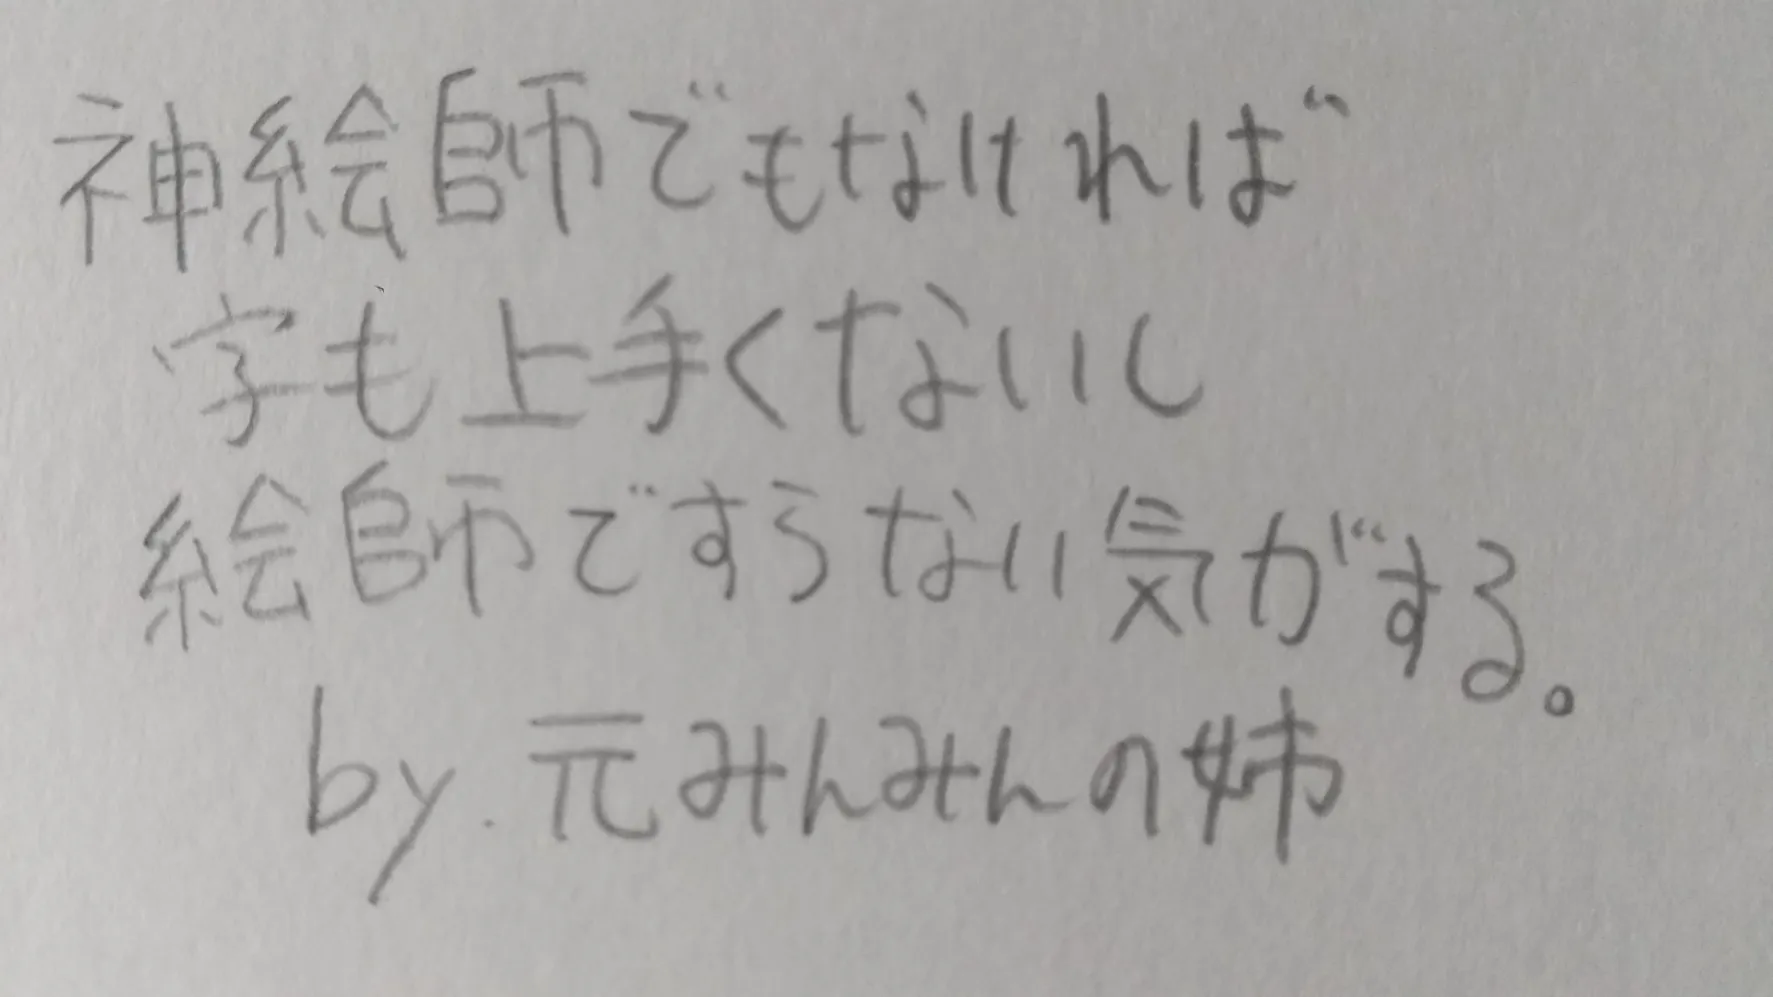 神絵師でもなければ
字も上手くないし
絵師ですらない気がする。
by.元みんみんの姉